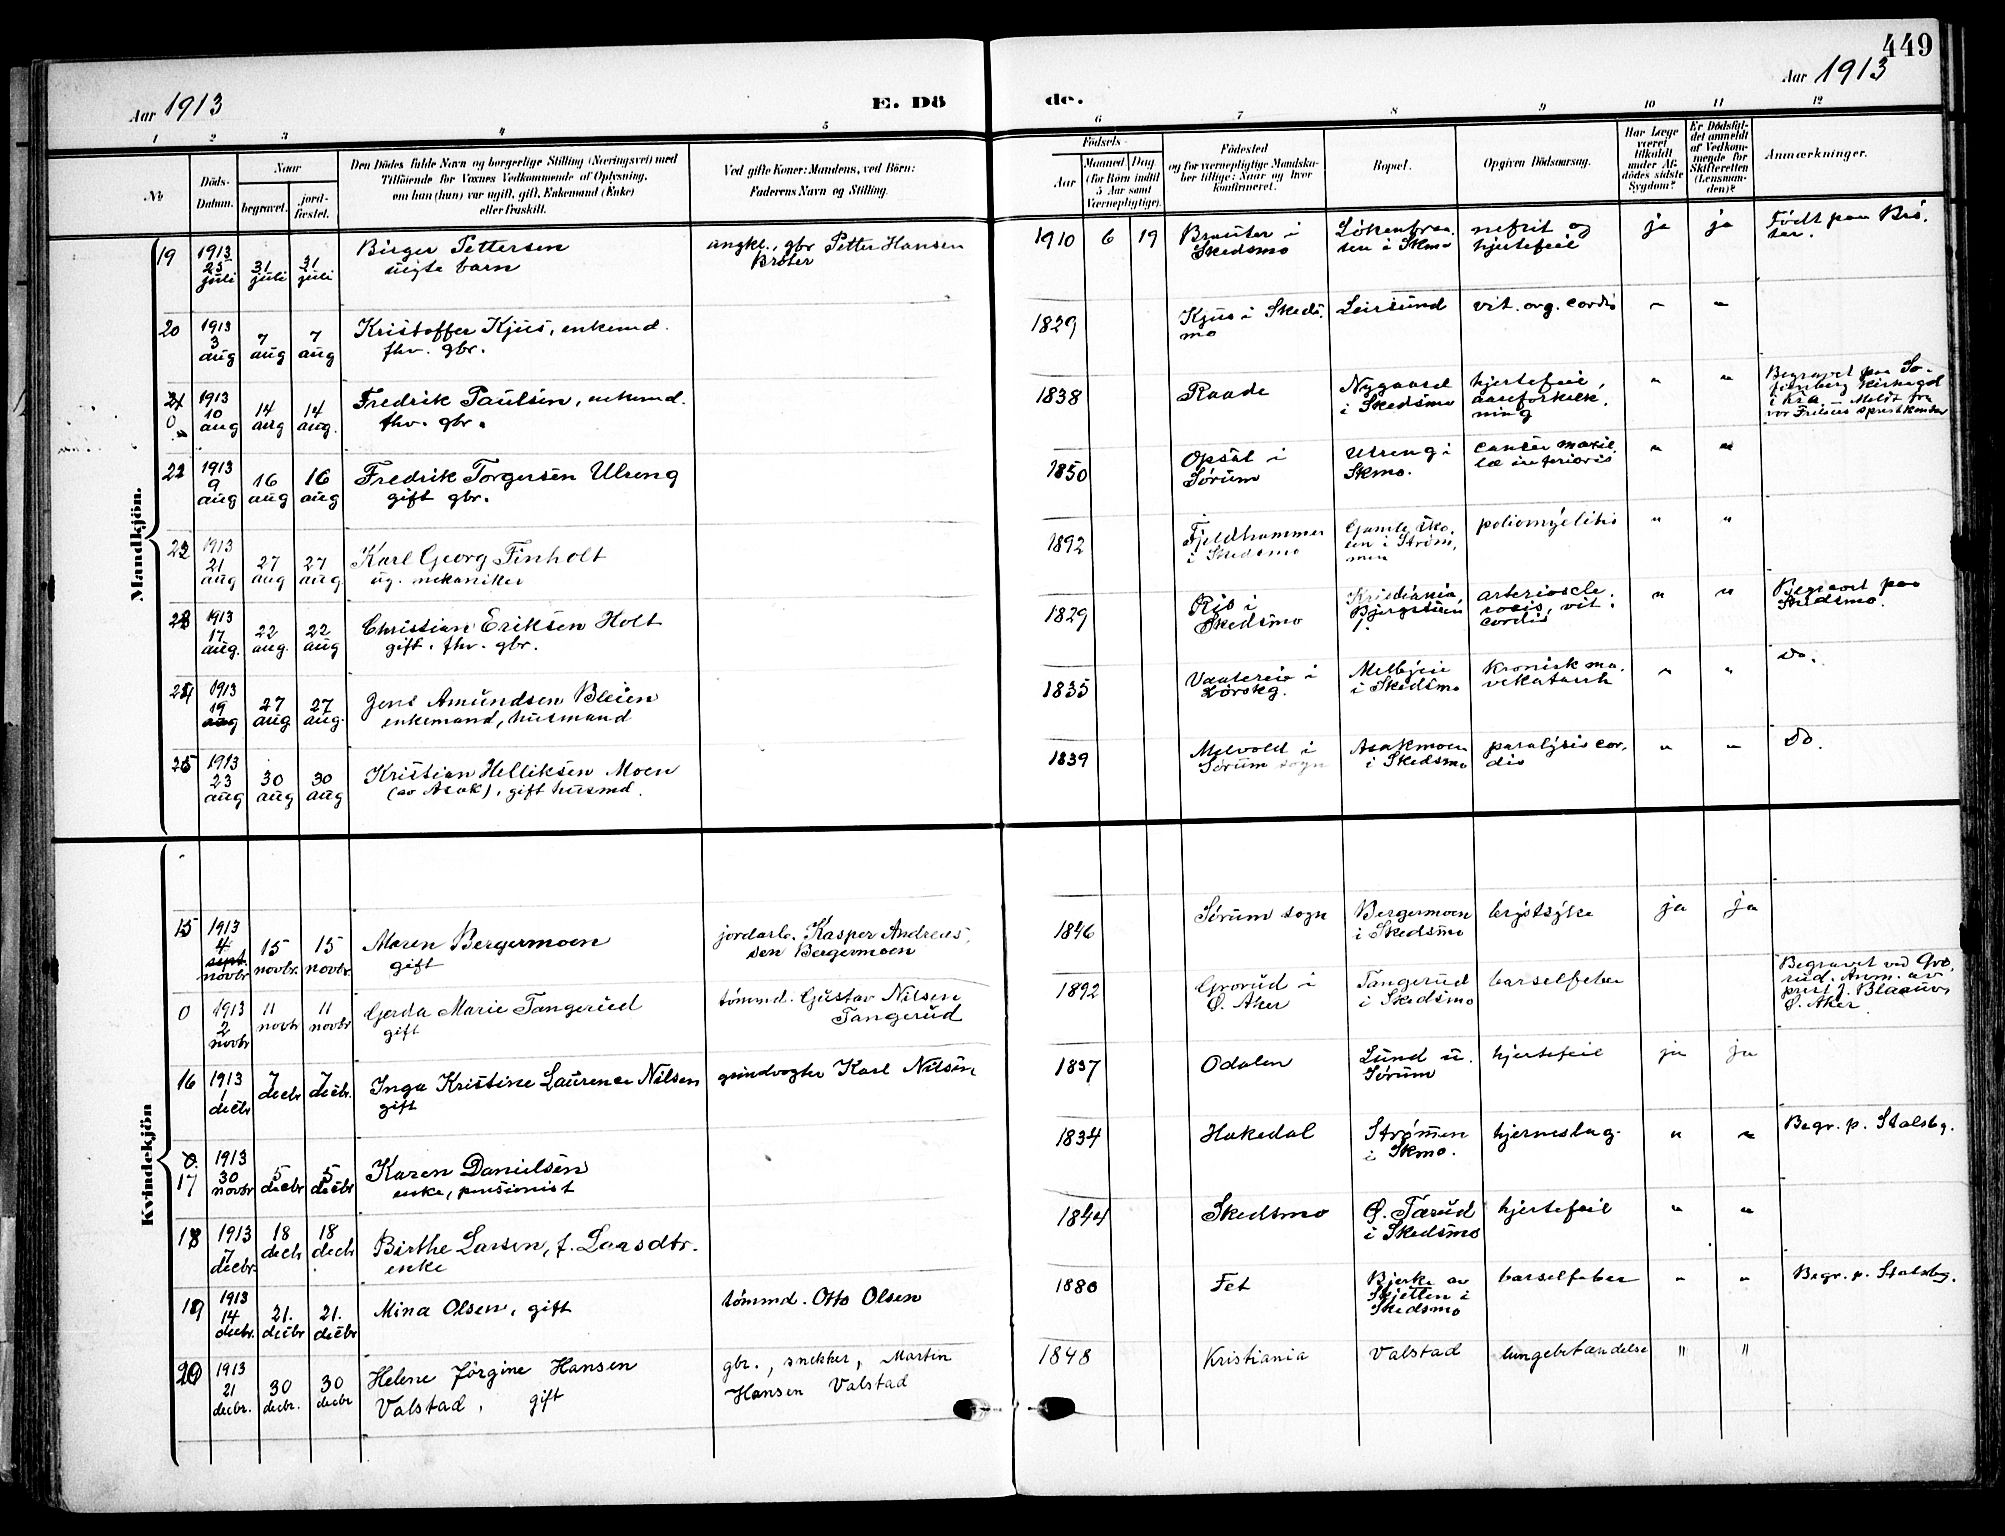 449
Aar 1913
E. Dö
de.
Aar 1913
1 2 3 4 5 6 7 8 9 10 11 12
No
Döds-
Datum.
Naar
begravet.
jord-
fæstet.
Den Dödes fulde Navn og borgerlige Stilling (Næringsvei) med
Tilföiende for Voxnes Vedkommende af Oplysning,
om han (hun) var ugift, gift, Enkemand (Enke)
eller fraskilt.
Ved gifte Koner: Mandens, ved Börn:
Faderens Navn og Stilling.
Födsels-
Aar
Maaned
Dag
(for Börn indtil
5 Aar samt
Værnepligtige).
Födested
og for værnepligtige Mandska-
ber tillige: Naar og hvor
konfirmeret.
Bopæl.
Opgiven Dödsaarsag.
Har Læge
været
tilkaldt
under Af-
dödes sidste
Sygdom?
Er Dödsfal-
det anmeldt
af Vedkom-
mende for
Skifteretten
(Lensman-
den)?
Anmærkninger.
Mandkjön.
19
1913
25
juli
31
juli
31
juli
Birger Pettersen
uegte barn
angkl., gbr Petter Hansen
Bråter
1910 6 19
Brauter i
Skedsmo
i Skmo
nefrit og
hjertefeil
ja
ja
Födt paa Brå-
ter.
20
1913
3
aug
7
aug
7
aug
Kristoffer Kjus, enkemd.
fhv. gbr.
1829
Kjus i Skeds-
mo
Leirsund
vit. org. cordis
"
"
21
0
1913
10
aug
14
aug
14
aug.
Fredrik Paulsen, enkemd.
fhv. gbr.
1838
Raade
Nygaard
i Skedsmo
hjertefeil,
aareforkalk-
ning
"
"
Begravet paa So-
fienberg Kirkegd
i Kra. – Meldt fra
vor Frelsers
22
1913
9
aug
16
aug
16
aug
Fredrik Torgersen Ulreng
gift gbr.
1850
Opsal i
Sørum
Ulreng i
Skmo.
cancer maxil-
læ inferioris
"
"
1913
21
aug
27
aug
27
aug
Karl Georg Finholt
ug. mekaniker
1892
Fjeldhammer
i Skedsmo
Gamle Sko-
len i Strøm-
men
poliomyelitis
"
"
1913
17
aug.
22
aug.
22
aug
Christian Eriksen Holt
gift. fhv. gbr.
1829
Ris i
Skedsmo
Kristiania,
arterioscle-
rosis, vit.
cordis
"
"
Begravet paa
Skedsmo.
1913
19
aug
27
aug
27
aug.
Jens Amundsen Bleien
enkemand, husmand
1835
i
Lørskg.
i Skedsmo
kronisk ma-
vekatarrh
"
"
Do.
25
1913
23
aug
30
aug
30
aug
Kristian Helliksen Moen
(av Asak), gift husmd.
1839
Melvold i
Sørum sogn
Asakmoen
i Skedsmo
paralysis cor-
dis
"
"
Do.
Kvindekjön
15
1913
4
sept.
novbr
15
novbr.
15
novbr.
Maren Bergermoen
gift
jordarb. Kasper Andreas-
sen Bergermoen
1846
Sørum sogn
Bergermoen
i Skedsmo
brystsyke
ja
ja
0
1913
2
novbr
11
novbr
11
novbr
Gerda Marie Tangerud
gift
tömmd. Gustav Nilsen
Tangerud
1892
Grorud i
Ø. Aker
Tangerud
i Skedsmo
barselfeber
Begravet ved Gro-
rud. Anm. av
prest J. Blaauw,
Ø. Aker
16
1913
1
decbr
7
decbr
7
decbr.
Inga Kristine Laurence Nilsen
gift
grindvogter Karl Nilsen
1837
Odalen
Lund i
Sørum
hjertefeil
ja
ja
0.
17
1913
30
novbr
5
decbr
5
decbr
Karen Danielsen
enke, pensionist
1834
Hakedal
Strømmen
i Skmo.
hjerneslag.
"
"
Begr. p. Stalsbg.
18
1913
7
decbr.
18
decb
18
decb
Birthe Larsen, f. Larsdtr.
enke
1844
Skedsmo
Ø. Tærud
i Skedsmo
hjertefeil
"
"
19
1913
14
decbr.
21.
decbr
21.
decbr
Mina Olsen, gift
tömmd. Otto Olsen
1880
Fet
Bjerke av
Skjetten i
Skedsmo
barselfeber
"
"
Begr. p. Stalsbg.
20
1913
21
decbr.
30
decbr.
30
decbr
Helene Jörgine Hansen
Valstad, gift
gbr., snekker, Martin
Hansen Valstad
1848
Kristiania
Valstad
lungebetændelse
"
"